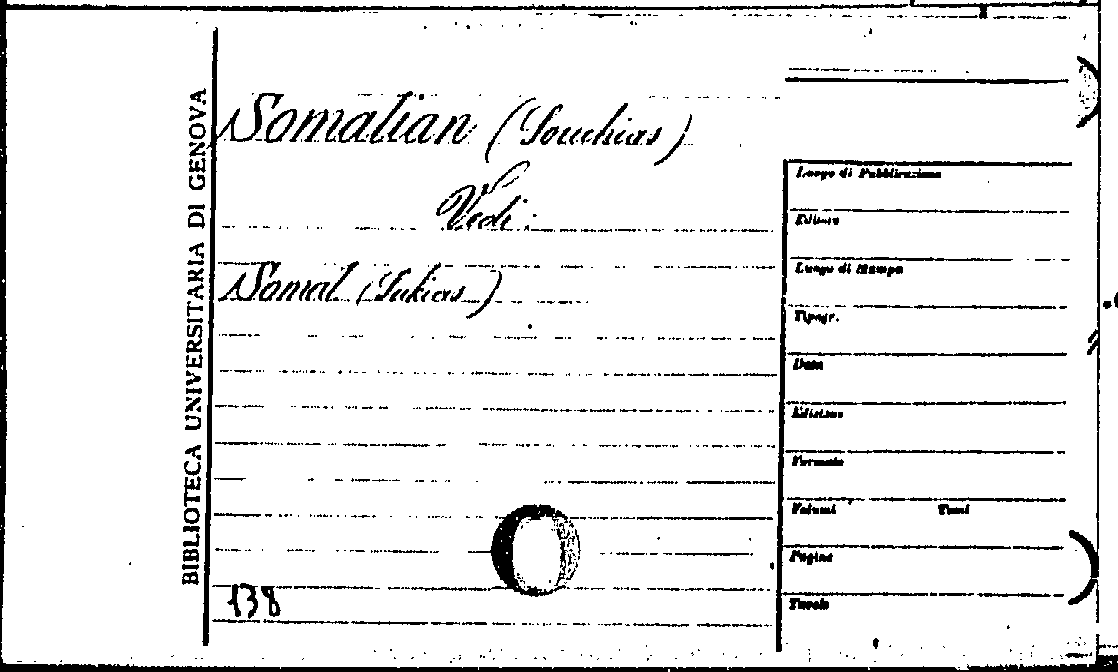 BIBLIOTECA UNIVERSITARIA DI GENOVA
Somalian (Souchias)
Vedi:
Somal (Sukias)
138
Luogo di Pubblicazione
Editore
Luogo di Stampa
Tipogr.
Data
Edizione
Formato
Volumi Tomi
Pagine
Tavole